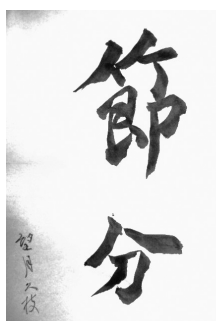 節分
望月久枝